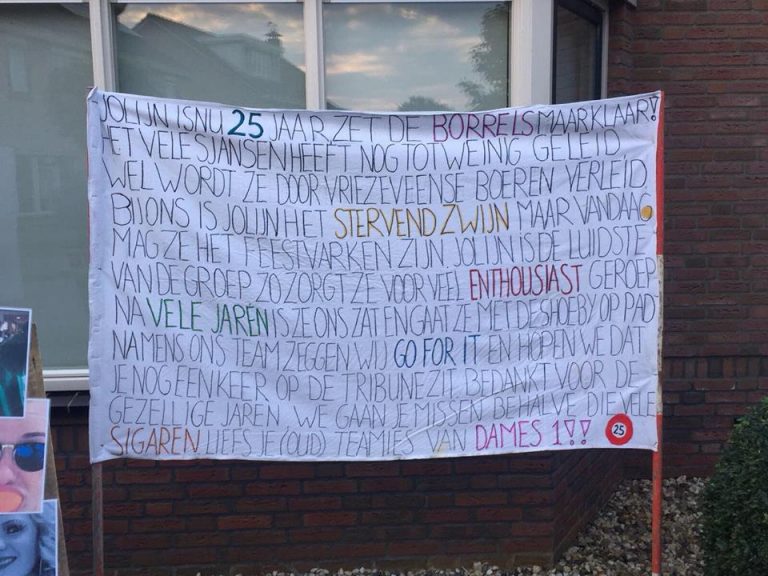 JOLIJN IS NU 25 JAAR ZET DE BORRELS MAAR KLAAR!
HET VELE SJANSEN HEEFT NOG TOT WEINIG GELEID
WEL WORDT ZE DOOR VRIEZEVEENSE BOEREN VERLEID.
BIJ ONS IS JOLIJN HET STERVEND ZWIJN MAAR VANDAAG
MAG ZE HET FEESTVARKEN ZIJN. JOLIJN IS DE LUIDSTE
VAN DE GROEP ZO ZORGT ZE VOOR VEEL ENTHOUSIAST GEROEP
NA VELE JAREN IS ZE ONS ZAT EN GAAT ZE MET DE SHOEBY OP PAD
NAMENS ONS TEAM ZEGGEN WIJ GO FOR IT EN HOPEN WE DAT
JE NOG EEN KEER OP DE TRIBUNE ZIT. BEDANKT VOOR DE
GEZELLIGE JAREN WE GAAN JE MISSEN BEHALVE DIE VELE
SIGAREN LIEFS JE (OUD) TEAMIES VAN DAMES 1!! 25